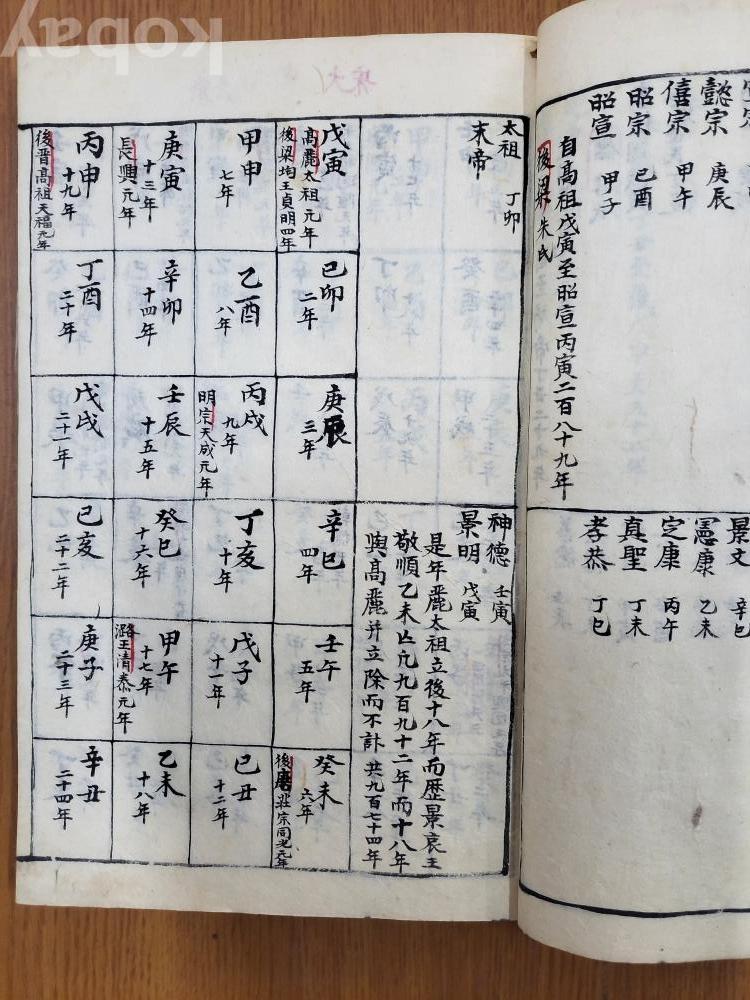 kobay
懿宗 庚辰
僖宗 甲午
昭宗 己酉
昭宣 甲子
自高祖戊寅至昭宣丙寅二百八十九年
後梁 朱氏
景文 辛巳
憲康 乙未
定康 丙午
真聖 丁未
孝恭 丁巳
太祖 丁卯
末帝
神德 壬寅
景明 戊寅
是年麗太祖立後十八年而歷景哀王
敬順乙未亡凡九百九十二年而十八年
與高麗并立除而不計 共九百七十四年
戊寅
高麗太祖元年
後梁均王貞明四年
己卯
二年
庚辰
三年
辛巳
四年
壬午
五年
癸未
六年
後唐莊宗同光元年
甲申
七年
乙酉
八年
丙戌
九年
明宗天成元年
丁亥
十年
戊子
十一年
己丑
十二年
庚寅
十三年
長興元年
辛卯
十四年
壬辰
十五年
癸巳
十六年
甲午
十七年
潞王清泰元年
乙未
十八年
丙申
十九年
後晋高祖天福元年
丁酉
二十年
戊戌
二十一年
己亥
二十二年
庚子
二十三年
辛丑
二十四年